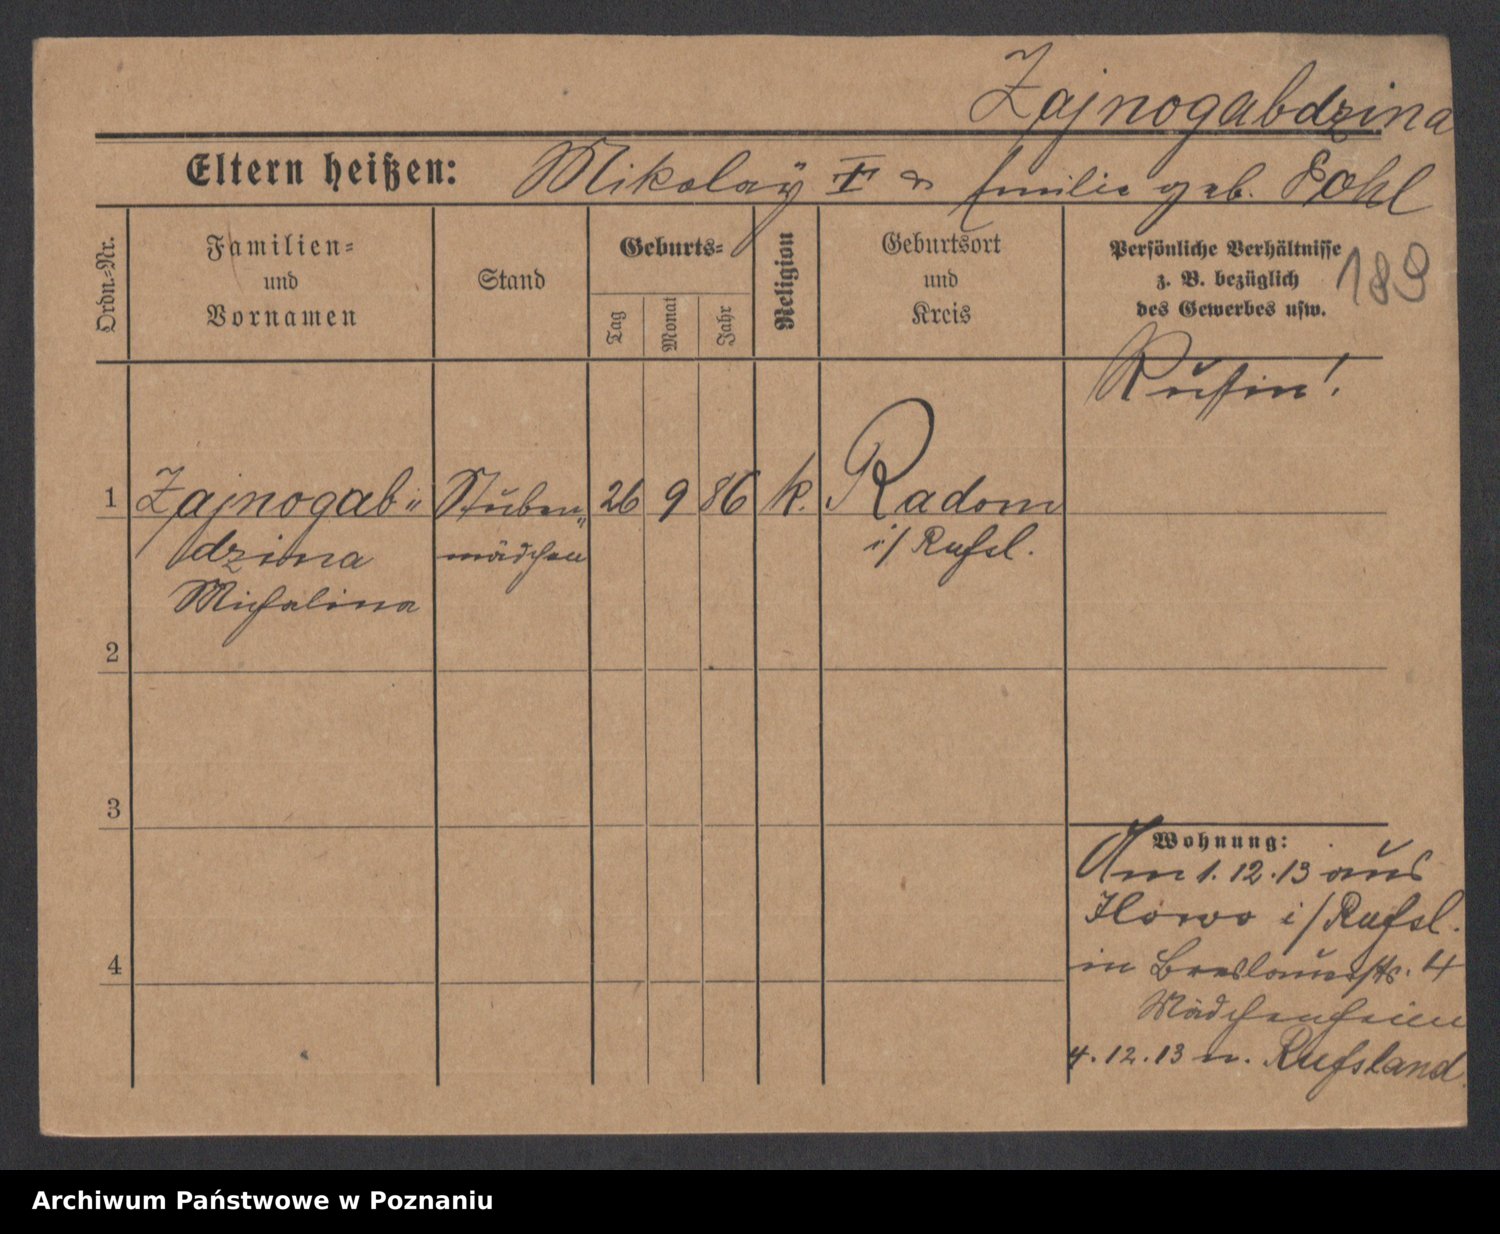 Zajnogabdzina
Eltern heißen: Mikolaÿ u Emilie geb. Pohl
Ordn.-Nr.
Familien-
und
Vornamen
Stand
Geburts-
Tag
Monat
Jahr
Religion
Geburtsort
und
Kreis
Persönliche Verhältnisse
z. B. bezüglich
des Gewerbes usw.
189
Russin!
1 Zajnogab- Stuben- 26 9 86 k. Radom
dzina mädchen i/ Russl.
Michalina
2
3
4
Wohnung:
Am 1.12.13 aus
Ilowo i/ Russl.
in Breslauerstr. 4
Mädchenheim
4.12.13 n. Russland.
Archiwum Państwowe w Poznaniu